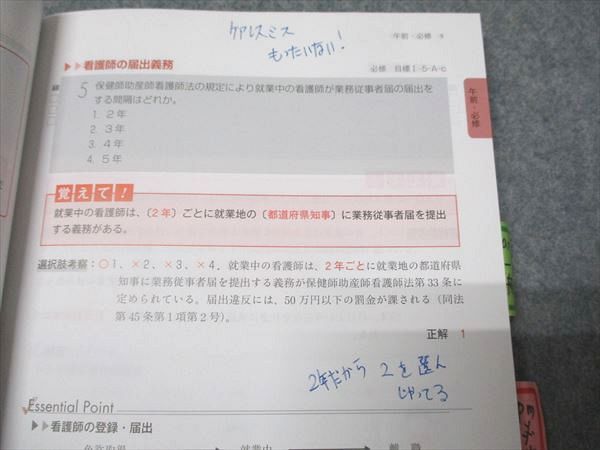 ケアレスミス
もったいない!
午前・必修
▶▶看護師の届出義務
必修 目標Ⅰ-5-A-c
5 保健師助産師看護師法の規定により就業中の看護師が業務従事者届の届出を
する間隔はどれか。
1. 2年
2. 3年
3. 4年
4. 5年
午前・必修
覚えて!
就業中の看護師は、〔2年〕ごとに就業地の〔都道府県知事〕に業務従事者届を提出
する義務がある。
選択肢考察：○1、×2、×3、×4. 就業中の看護師は、2年ごとに就業地の都道府県
知事に業務従事者届を提出する義務が保健師助産師看護師法第33条に
定められている。届出違反には、50万円以下の罰金が課される（同法
第45条第1項第2号）。
正解 1
2年だから 2を選ん
じゃってる
Essential Point
▶▶看護師の登録・届出
免許取得 就業中 離職